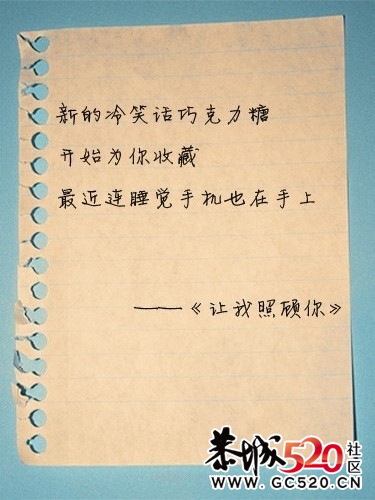 新的冷笑话巧克力糖
开始为你收藏
最近连睡觉手机也在手上
——《让我照顾你》
恭城520社区
WWW.GC520.CN